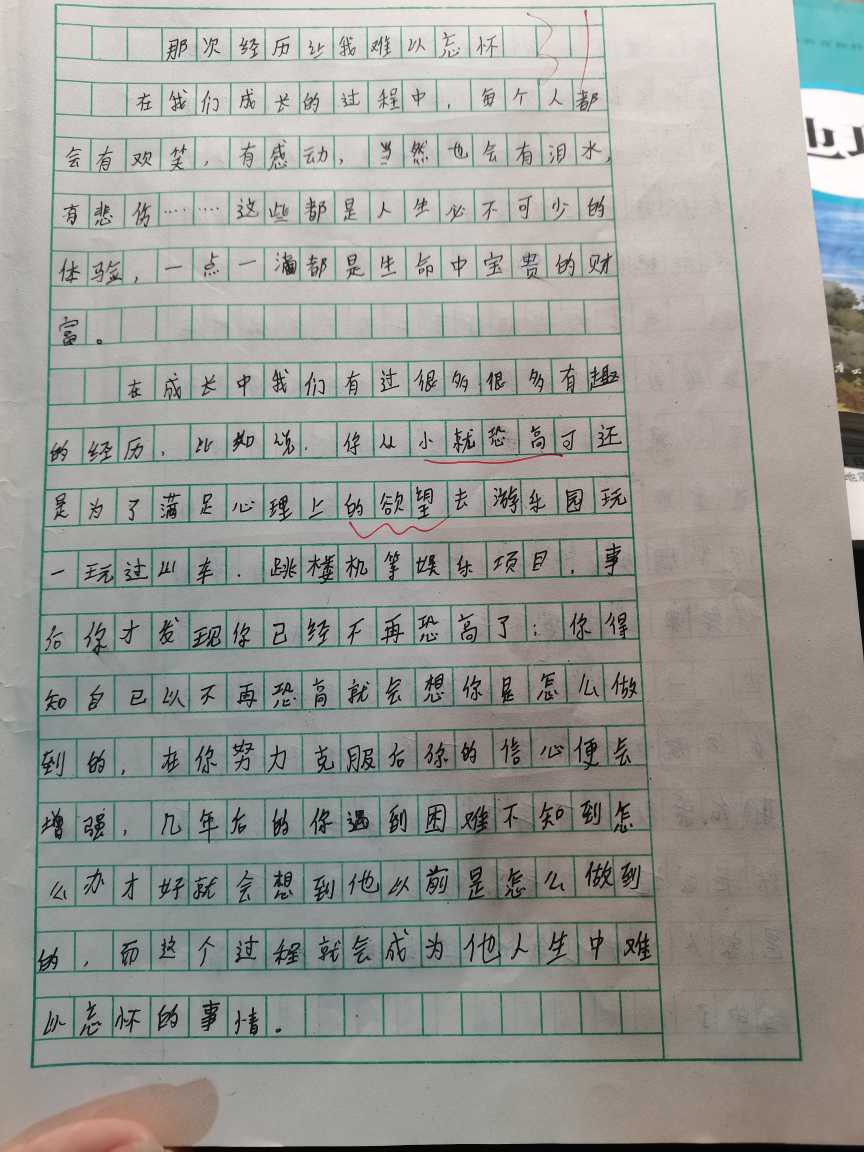 那次经历让我难以忘怀
在我们成长的过程中，每个人都
会有欢笑，有感动，当然也会有泪水，
有悲伤……这些都是人生必不可少的
体验，一点一滴都是生命中宝贵的财
富。
在成长中我们有过很多很多有趣
的经历，比如说，你从小就恐高可还
是为了满足心理上的欲望去游乐园玩
一玩过山车，跳楼机等娱乐项目，事
后你才发现你已经不再恐高了；你得
知自己以不再恐高就会想你是怎么做
到的，在你努力克服后你的信心便会
增强，几年后的你遇到困难不知到怎
么办才好就会想到他以前是怎么做到
的，而这个过程就会成为他人生中难
以忘怀的事情。